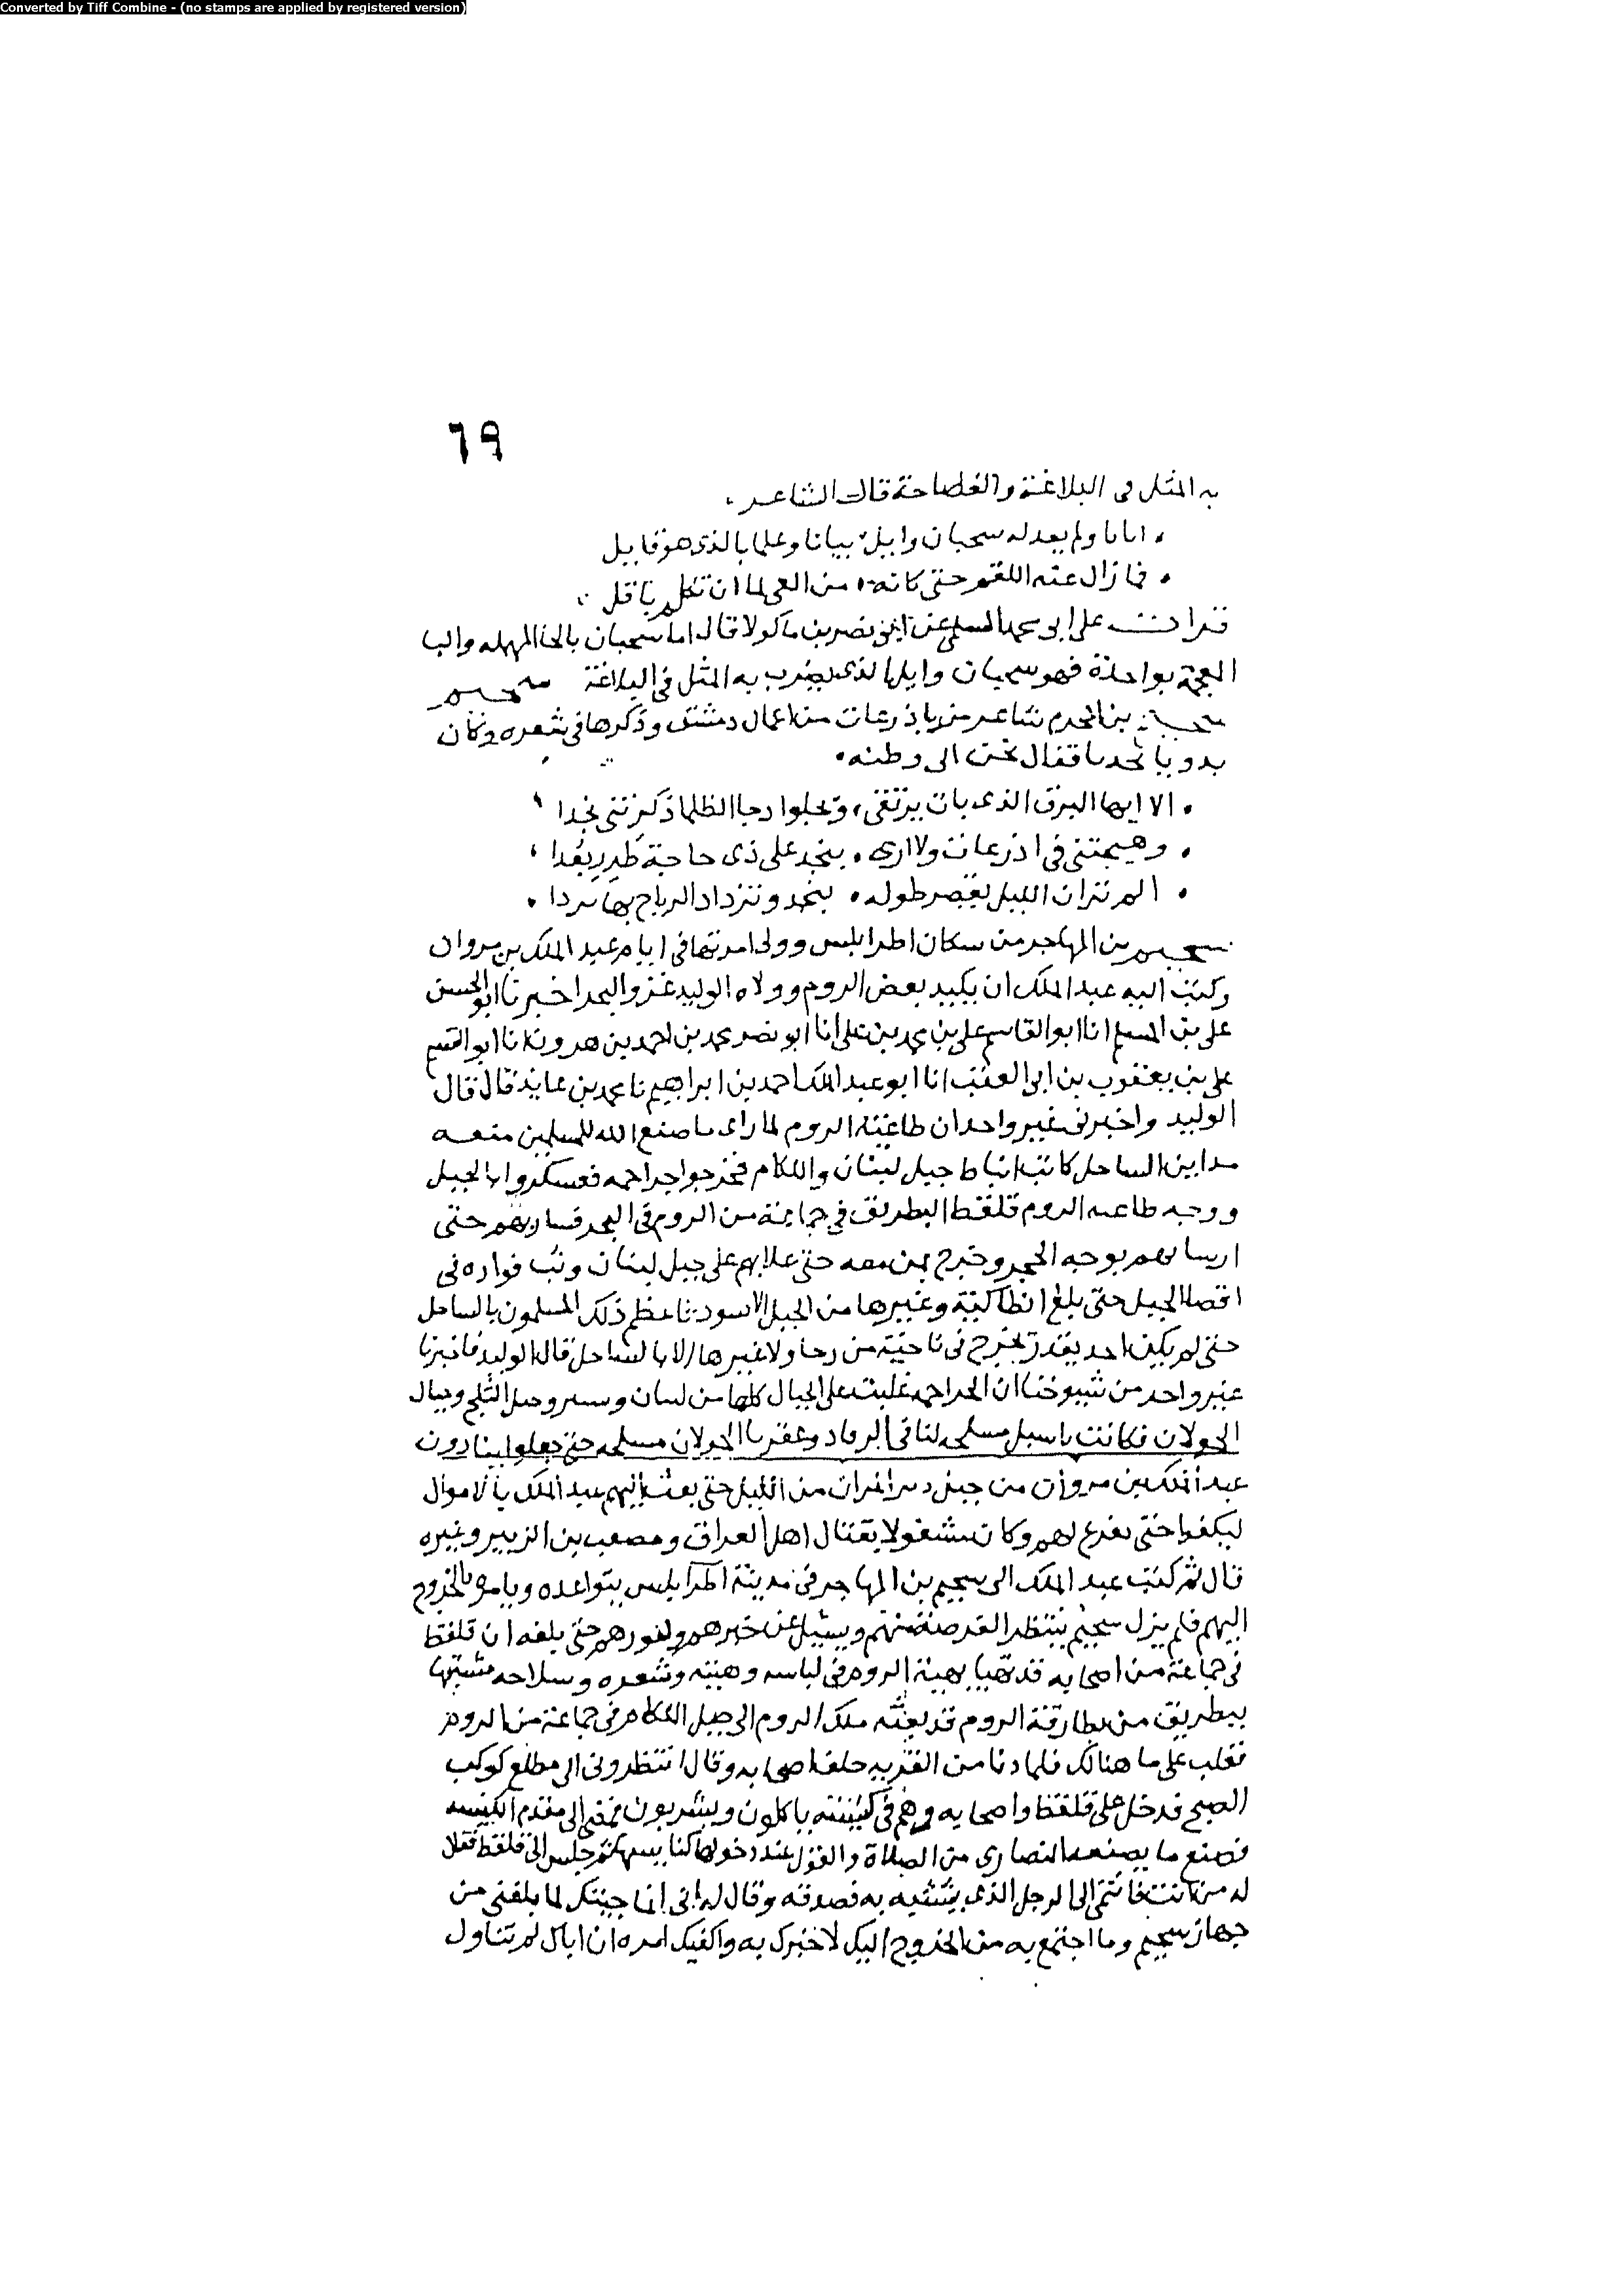 Converted by Tiff Combine - (no stamps are applied by registered version)
٦٩
به المثل فى البلاغة والفصاحة قال الشاعر
اتانا ولم يعدله سحبان وايل بيانا وعلما بالذى هو قايل
فما زال عنه اللقم حتى كانه من العى لما ان تكلم باقل
قرات على ابى محمد السلمى عن ابى نصر بن ماكولا قال اما سحبان بالحا المهمله والبا
المعجمة بواحدة فهو سحبان وايل الذى يضرب به المثل فى البلاغة سحيم
بن المخرم شاعر من باذرعات من اعمال دمشق وذكرها فى شعره وكان
بدويا نجديا فقال يحن الى وطنه
الا ايها البرق الذى بات يرتقى ويجلوا دجا الظلما ذكرتنى نجدا
وهيجتنى فى اذرعات ولا ارى بنجد على ذى حاجة طرب بعدا
الم تران الليل يقصر طوله بنجد وتزداد الرياح بها بردا
سحيم بن المهاجر من سكان اطرابلس وولى امرتها فى ايام عبد الملك بن مروان
وكتب اليه عبد الملك ان يكيد بعض الروم وولاه الوليد غزو البحر اخبرنا ابو الحسن
على بن المسلم انا ابو القاسم على بن محمد بن على انا ابو نصر محمد بن احمد بن هرون انا ابو القسم
على بن يعقوب بن ابى العقب انا ابو عبد الملك احمد بن ابراهيم نا محمد بن عايذ قال قال
الوليد واخبرنى غير واحد ان طاغية الروم لما راى ما صنع الله للمسلمين منعه
مداين الساحل كاتب انباط جبل لبنان واللكام فخرجوا جراجمه فعسكروا بالجبل
ووجه طاعىه الروم قلقط البطريق فى جماعة من الروم فى البحر فسار بهم حتى
ارسا بهم بوجه الحجر وخرج بمن معه حتى علا بهم على جبل لبنان وبث قواده فى
اقصا الجبل حتى بلغ انطاكية وغيرها من الجبل الاسود فاعظم ذلك المسلمون بالساحل
حتى لم يكن احد يقدر يخرج فى ناحية من رحا ولا غيرها الا بالسلاح قال الوليد فاخبرنا
غير واحد من شيوخنا ان الجراجمه غلبت على الجبال كلها من لبنان وسنير وجبل الثلج وجبال
الجولان فكانت باسبل مسلحه لنا فى الرقاد وعقربا الجولان مسلحه حتى جعلوا ينادون
عبد الملك بن مروان من جبل دير المران من الليل حتى بعث اليهم عبد الملك بالاموال
ليكفوا حتى يفرغ لهم وكان مشغولا بقتال اهل العراق ومصعب بن الزبير وغيره
قال ثم كتب عبد الملك الى سحيم بن المهاجر فى مدينة اطرابلس يتواعده ويامره بالخروج
اليهم فلم يزل سحيم ينتظر الفرصة منهم ويسيل عن خبرهم وامورهم حتى بلغه ان قلقط
فى جماعة من اصحابه قد تهيا بهيئة الروم فى لباسه وهيئته وشعره وسلاحه متشبها
ببطريق من بطارقة الروم قد بعثه ملك الروم الى جبل اللكام فى جماعة من الروم
فغلب على ما هنالك فلما دنا من القريه خلف اصحابه وقال انتظرونى الى مطلع كوكب
الصبح فدخل على قلقط واصحابه وهم فى كنيسته ياكلون ويشربون فمضى الى مقدم الكنيسه
فصنع ما يصنعه النصارى من الصلاة والقول عند دخولها كنايسهم ثم جلس الى قلقط فقال
له من انت فانتمى الى الرجل الذى يتشبه به فصدقه وقال له انى انما جيتك لما بلغنى من
جهاز سحيم وما اجتمع به من الخروج اليك لاخبرك به واكفيك امره ان اياك لم تتناول